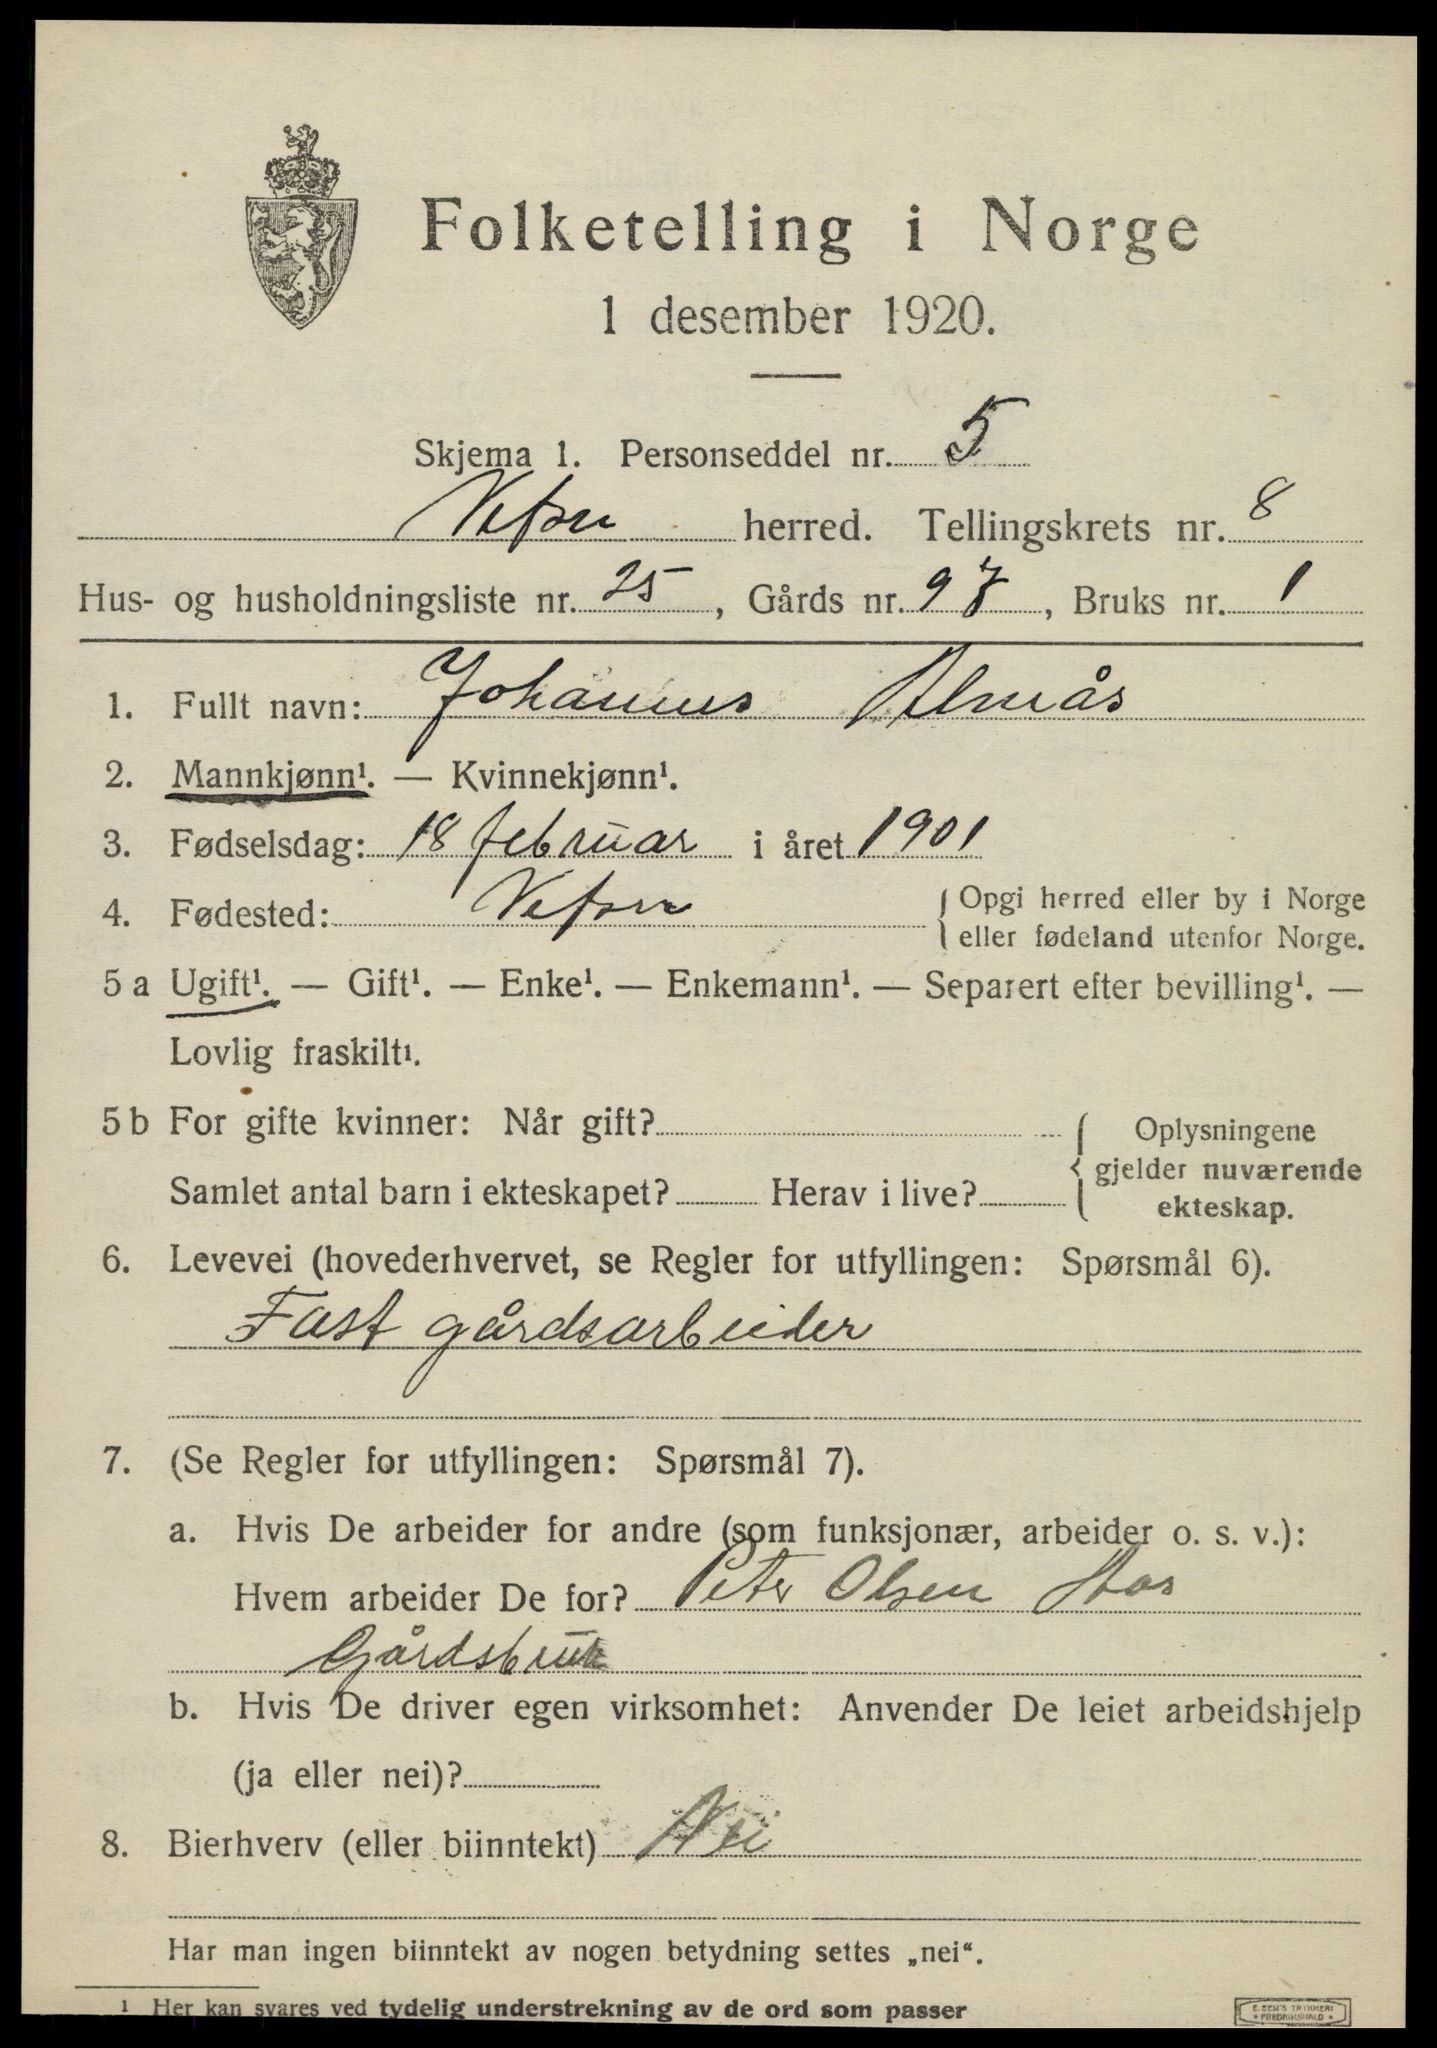 Folketelling i Norge
1 desember 1920.
Skjema 1. Personseddel nr. 5
Vefsn herred. Tellingskrets nr. 8
Hus- og husholdningsliste nr. 25, Gårds nr. 97, Bruks nr. 1
1. Fullt navn: Johannes Almås
2. Mannkjønn¹. — Kvinnekjønn¹.
3. Fødselsdag: 18 februar i året 1901
4. Fødested: Vefsn { Opgi herred eller by i Norge
eller fødeland utenfor Norge.
5 a Ugift¹. — Gift¹. — Enke¹. — Enkemann¹. — Separert efter bevilling¹. —
Lovlig fraskilt¹.
5 b For gifte kvinner: Når gift? { Oplysningene
gjelder nuværende
ekteskap.
Samlet antal barn i ekteskapet? Herav i live?
6. Levevei (hovederhvervet, se Regler for utfyllingen: Spørsmål 6).
Fast gårdsarbeider
7. (Se Regler for utfyllingen: Spørsmål 7).
a. Hvis De arbeider for andre (som funksjonær, arbeider o. s. v.):
Hvem arbeider De for? Peter Olsen
Gårdsbruk
b. Hvis De driver egen virksomhet: Anvender De leiet arbeidshjelp
(ja eller nei)?
8. Bierhverv (eller biinntekt) Nei
Har man ingen biinntekt av nogen betydning settes „nei“.
¹ Her kan svares ved tydelig understrekning av de ord som passer
E. SEM'S TRYKKERI
* FREDRIKSHALD *